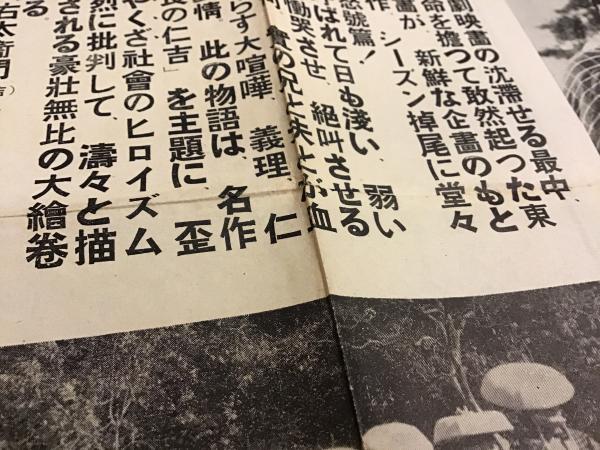 劇映畫の沈滯せる最中、
命を擔つて敢然起つた東
新鮮な企畫のもと
畫が シーズン掉尾に堂々
作
怒號篇!
呼ばれて日も淺い、弱い
慟哭させ、絕叫させる
實の兄と弟とが血
らす大喧嘩、義理、仁
情 此の物語は、名作
長の仁吉」を主題に、歪
やくざ社會のヒロイズム
烈に批判して、濤々と描
される豪壯無比の大繪卷
る
右太衛門